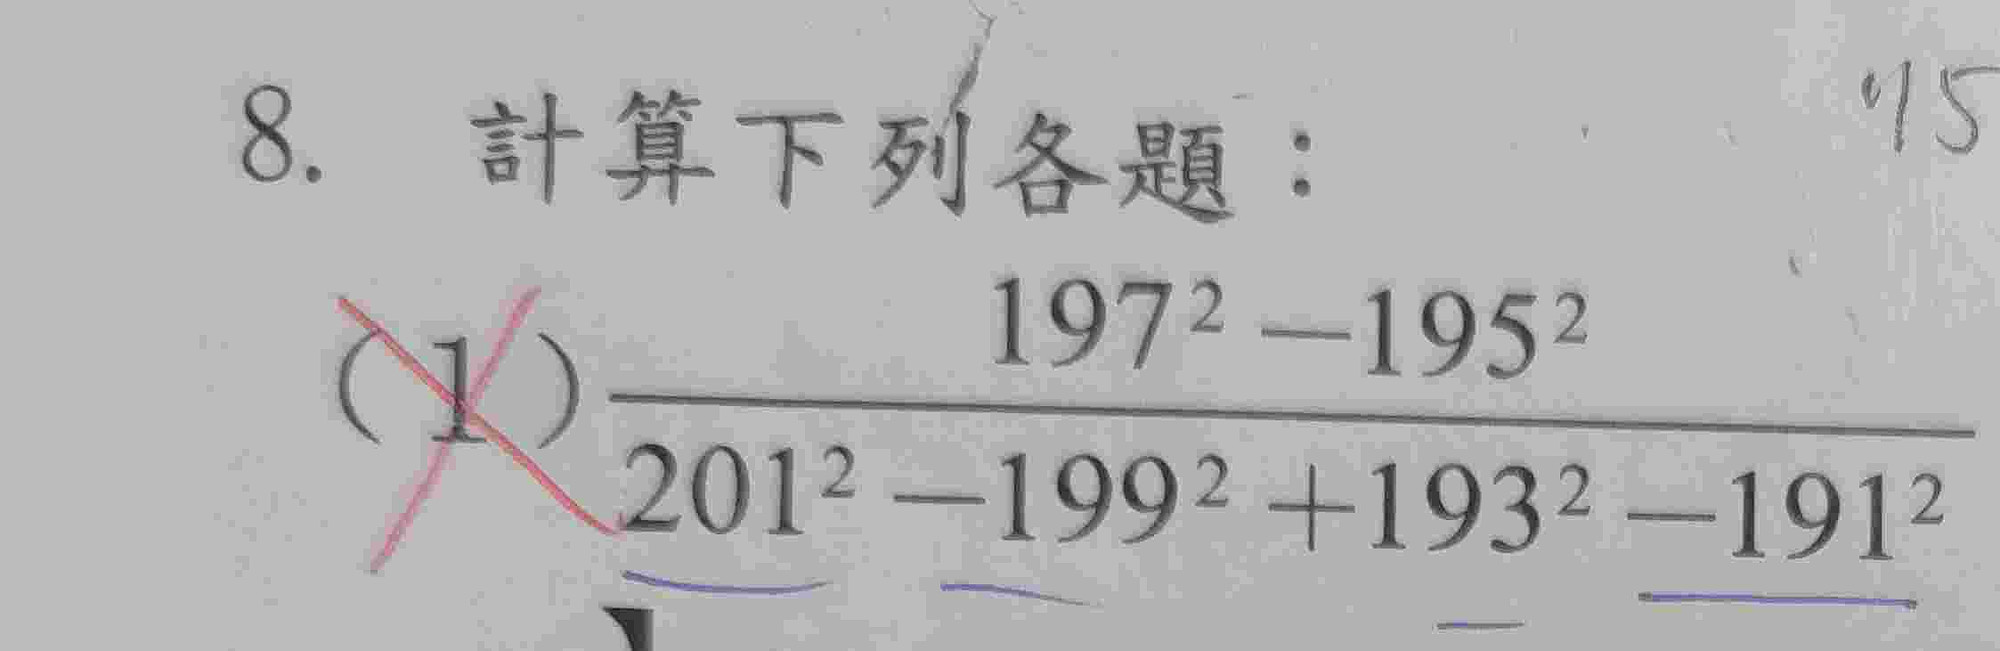 8. 計算下列各題：
15
(1) 197² －195²
201² －199² ＋193² －191²